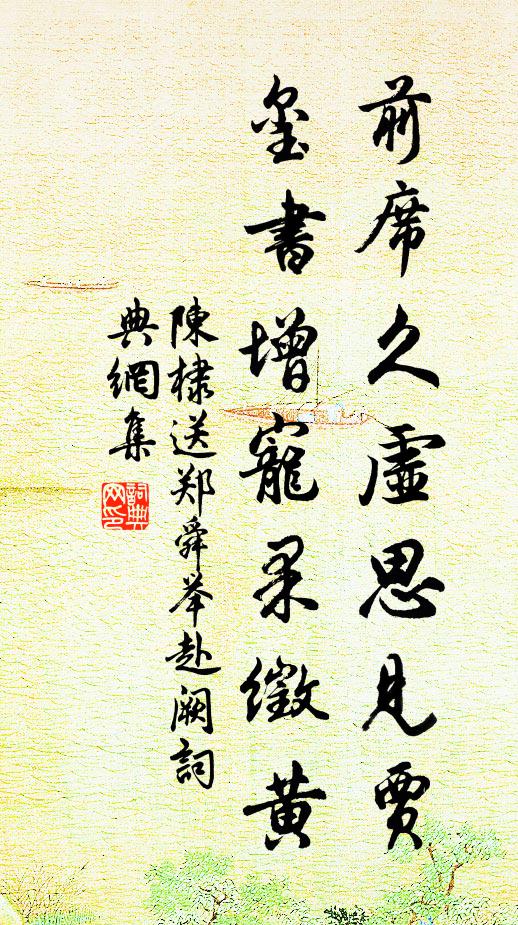 前席久虛思見賈
玺書增寵果徵黃
陳棣送郑舜举赴阙詞
典網集
詞典
网印